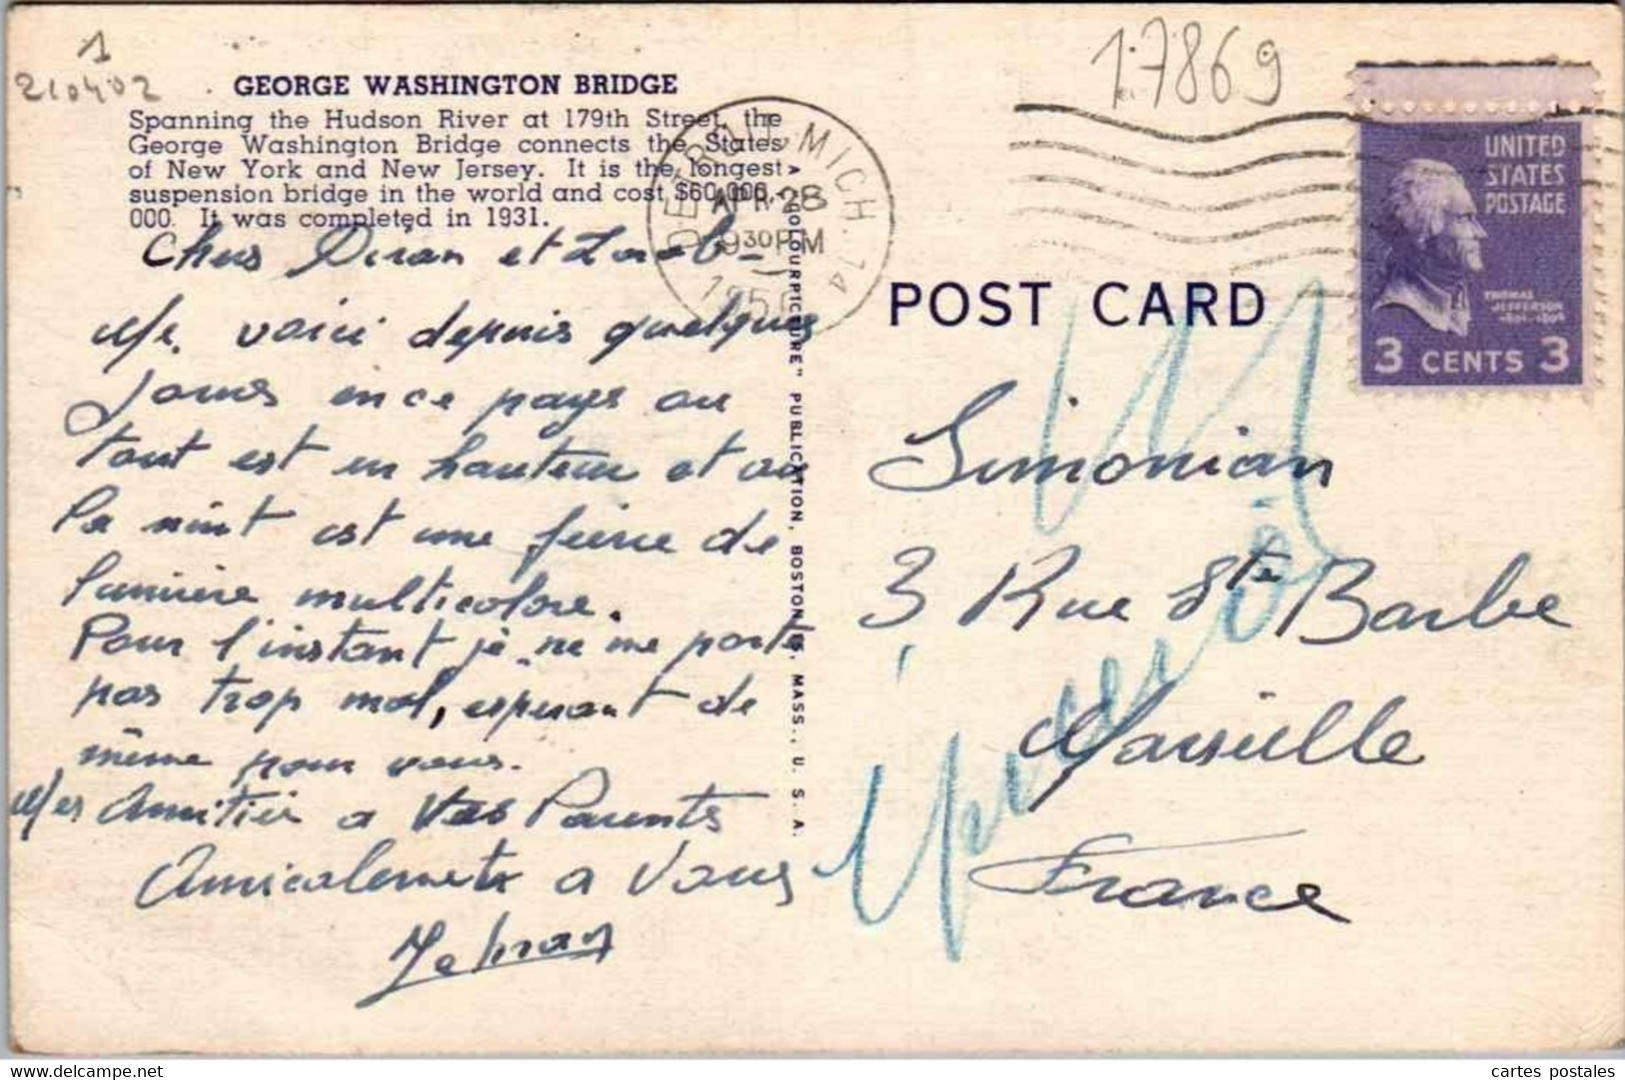 1
210402
17869
GEORGE WASHINGTON BRIDGE
Spanning the Hudson River at 179th Street, the
George Washington Bridge connects the States
of New York and New Jersey. It is the longest
suspension bridge in the world and cost $60,000,-
000. It was completed in 1931.
DETROIT, MICH. 14
APR 28
930 PM
UNITED
STATES
POSTAGE
THOMAS
JEFFERSON
3 CENTS 3
POST CARD
"COLOURPICTURE" PUBLICATION, BOSTON 15, MASS., U. S. A.
Chers Diran et
Me voici depuis quelques
jours en ce pays ou
tout est en hauteur et ou
la nuit est une féerie de
lumière multicolore.
Pour l'instant je ne me porte
pas trop mal, esperant de
même pour vous.
Mes Amitiés a Vos Parents
Amicalement a Vous
Simonian
3 Rue Ste Barbe
Marseille
France
cartes postales